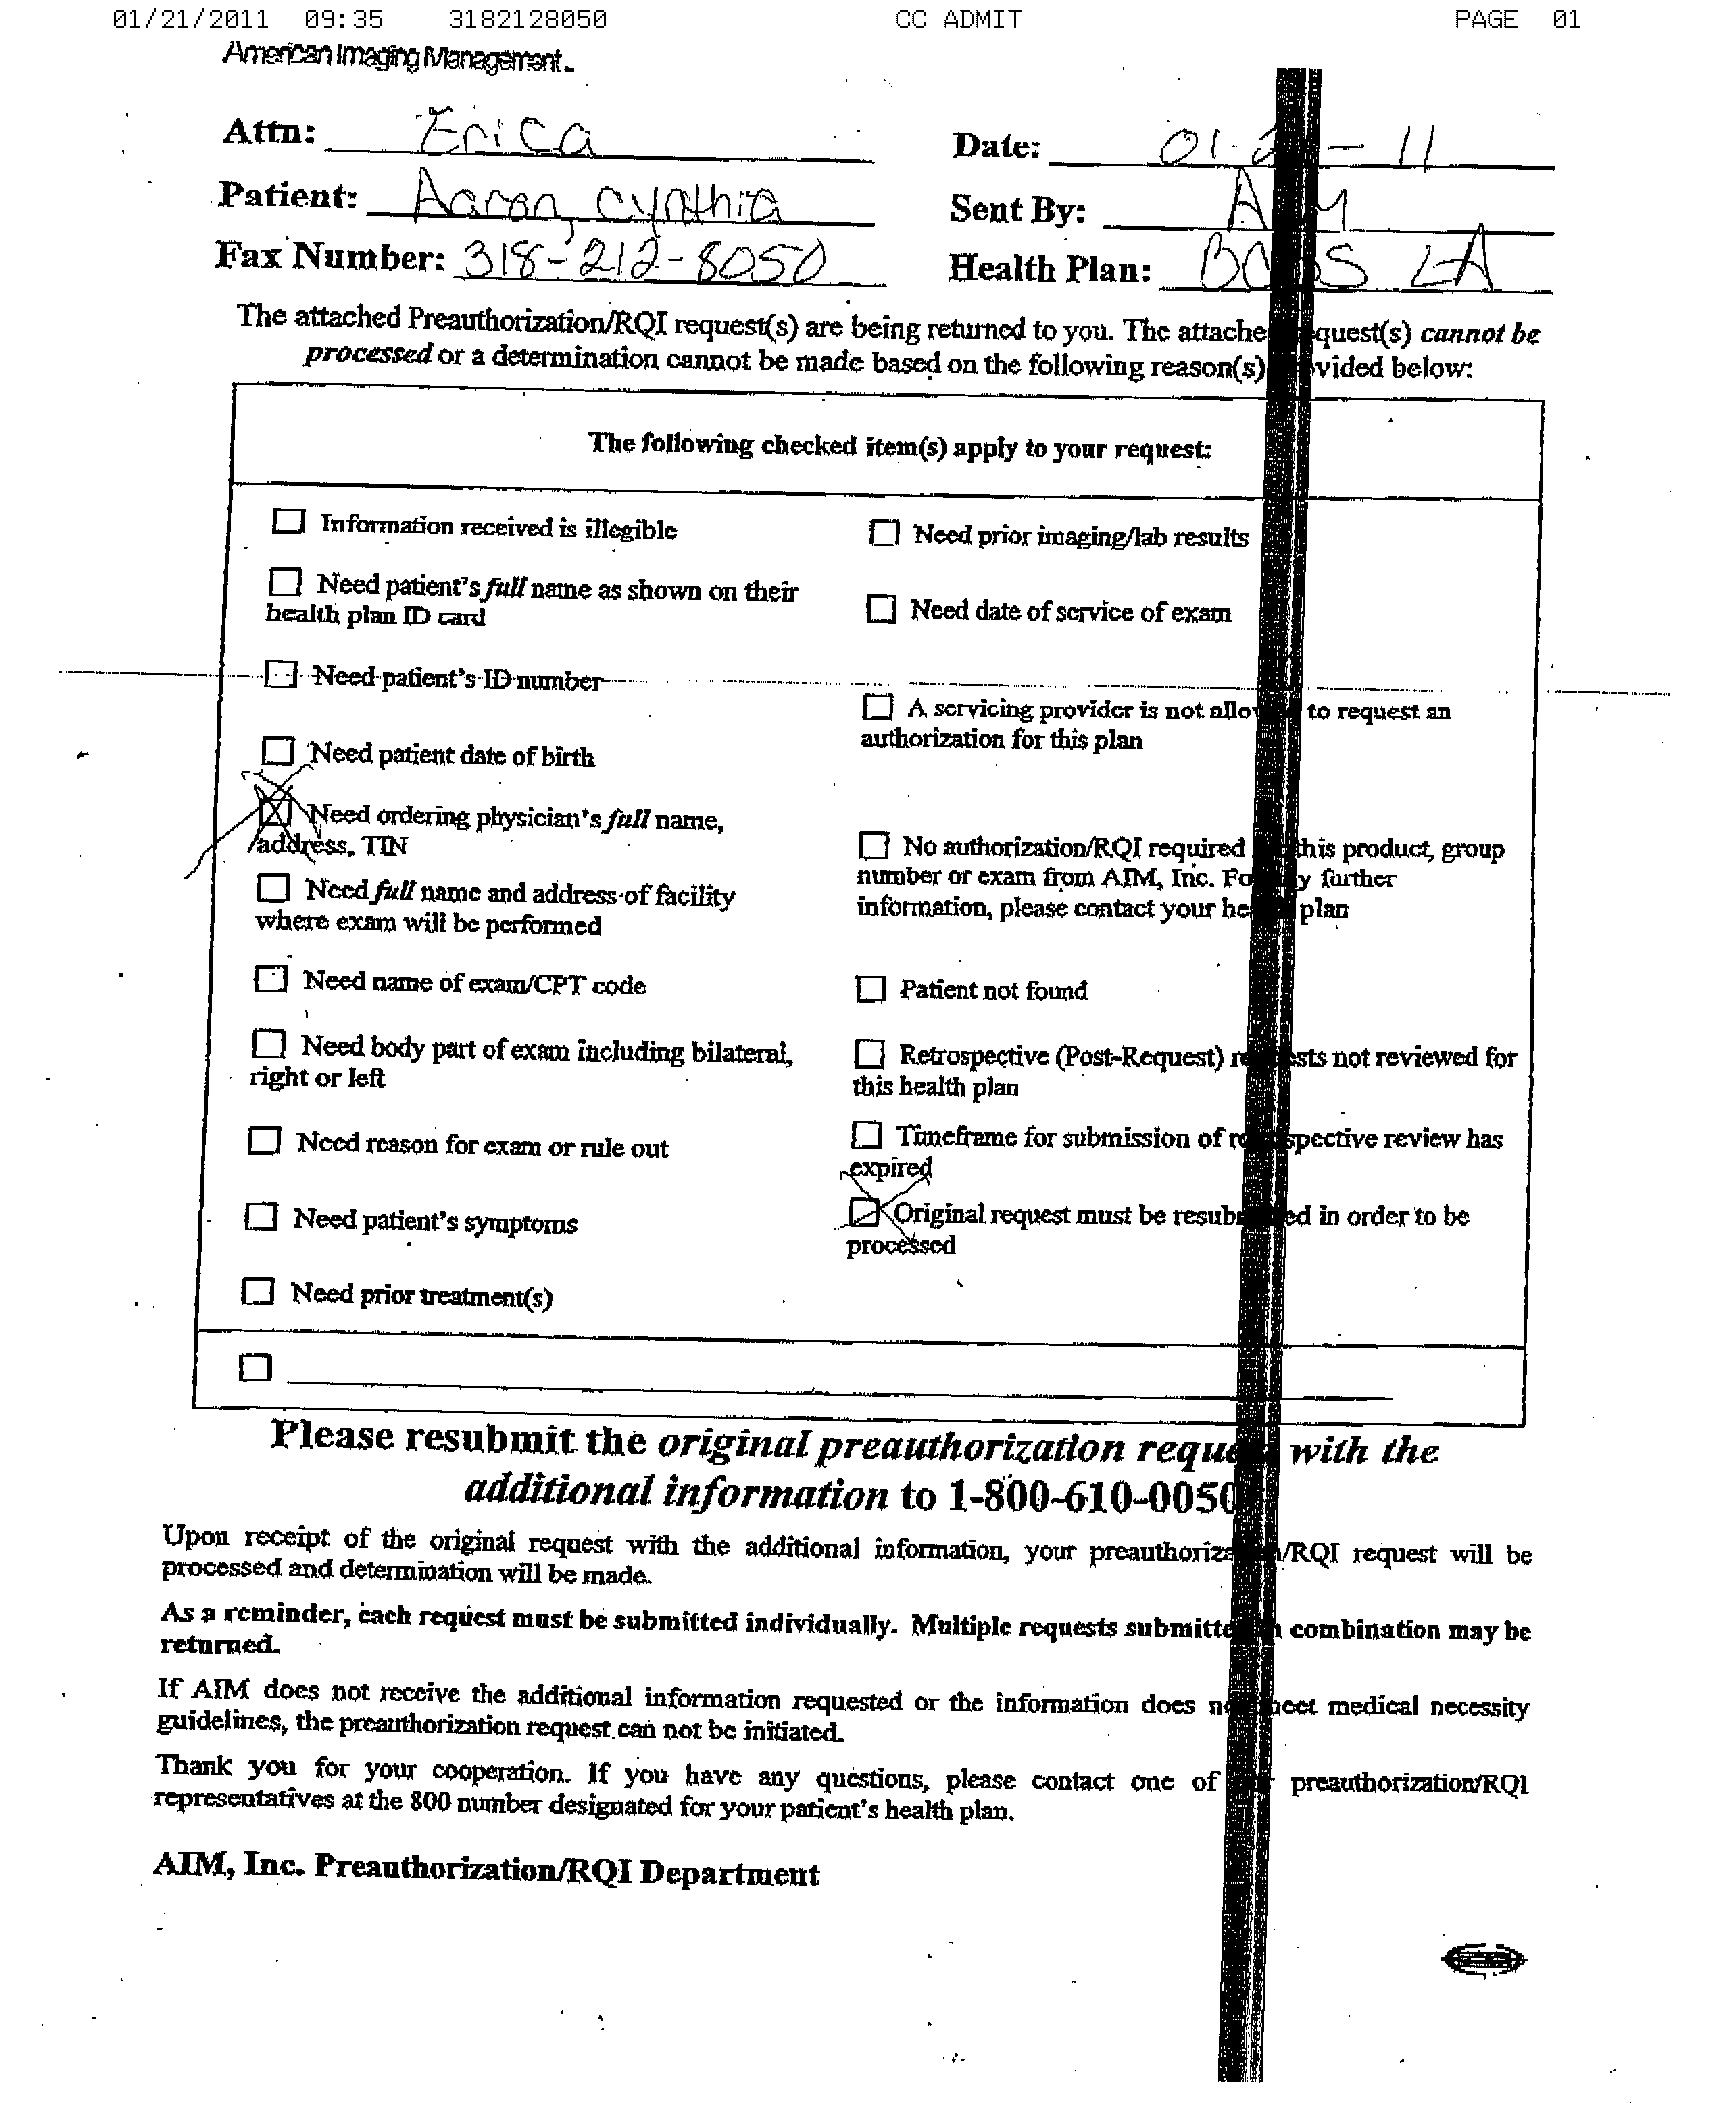 01/21/2011 09:35 3182128050 CC ADMIT PAGE 01
American Imaging Management.
Attn: Erica
Date: 01-2 - 11
Patient: Aaron, Cynthia
Sent By: A M
Fax Number: 318-212-8050
Health Plan: BC S LA
The attached Preauthorization/RQI request(s) are being returned to you. The attache quest(s) cannot be
processed or a determination cannot be made based on the following reason(s) vided below:
The following checked item(s) apply to your request:
Information received is illegible
Need patient's full name as shown on their
health plan ID card
Need patient's ID number
Need patient date of birth
Need ordering physician's full name,
address, TIN
Need full name and address of facility
where exam will be performed
Need name of exam/CPT code
Need body part of exam including bilateral,
right or left
Need reason for exam or rule out
Need patient's symptoms
Need prior treatment(s)
Need prior imaging/lab results
Need date of service of exam
A servicing provider is not allo to request an
authorization for this plan
No authorization/RQI required this product, group
number or exam from AIM, Inc. Fo y further
information, please contact your he plan
Patient not found
Retrospective (Post-Request) re sts not reviewed for
this health plan
Timeframe for submission of re spective review has
expired
Original request must be resub ed in order to be
processed
Please resubmit the original preauthorization reque with the
additional information to 1-800-610-0050
Upon receipt of the original request with the additional information, your preauthoriza /RQI request will be
processed and determination will be made.
As a reminder, each request must be submitted individually. Multiple requests submitte combination may be
returned.
If AIM does not receive the additional information requested or the information does n meet medical necessity
guidelines, the preauthorization request can not be initiated.
Thank you for your cooperation. If you have any questions, please contact one of preauthorization/RQI
representatives at the 800 number designated for your patient's health plan.
AIM, Inc. Preauthorization/RQI Department